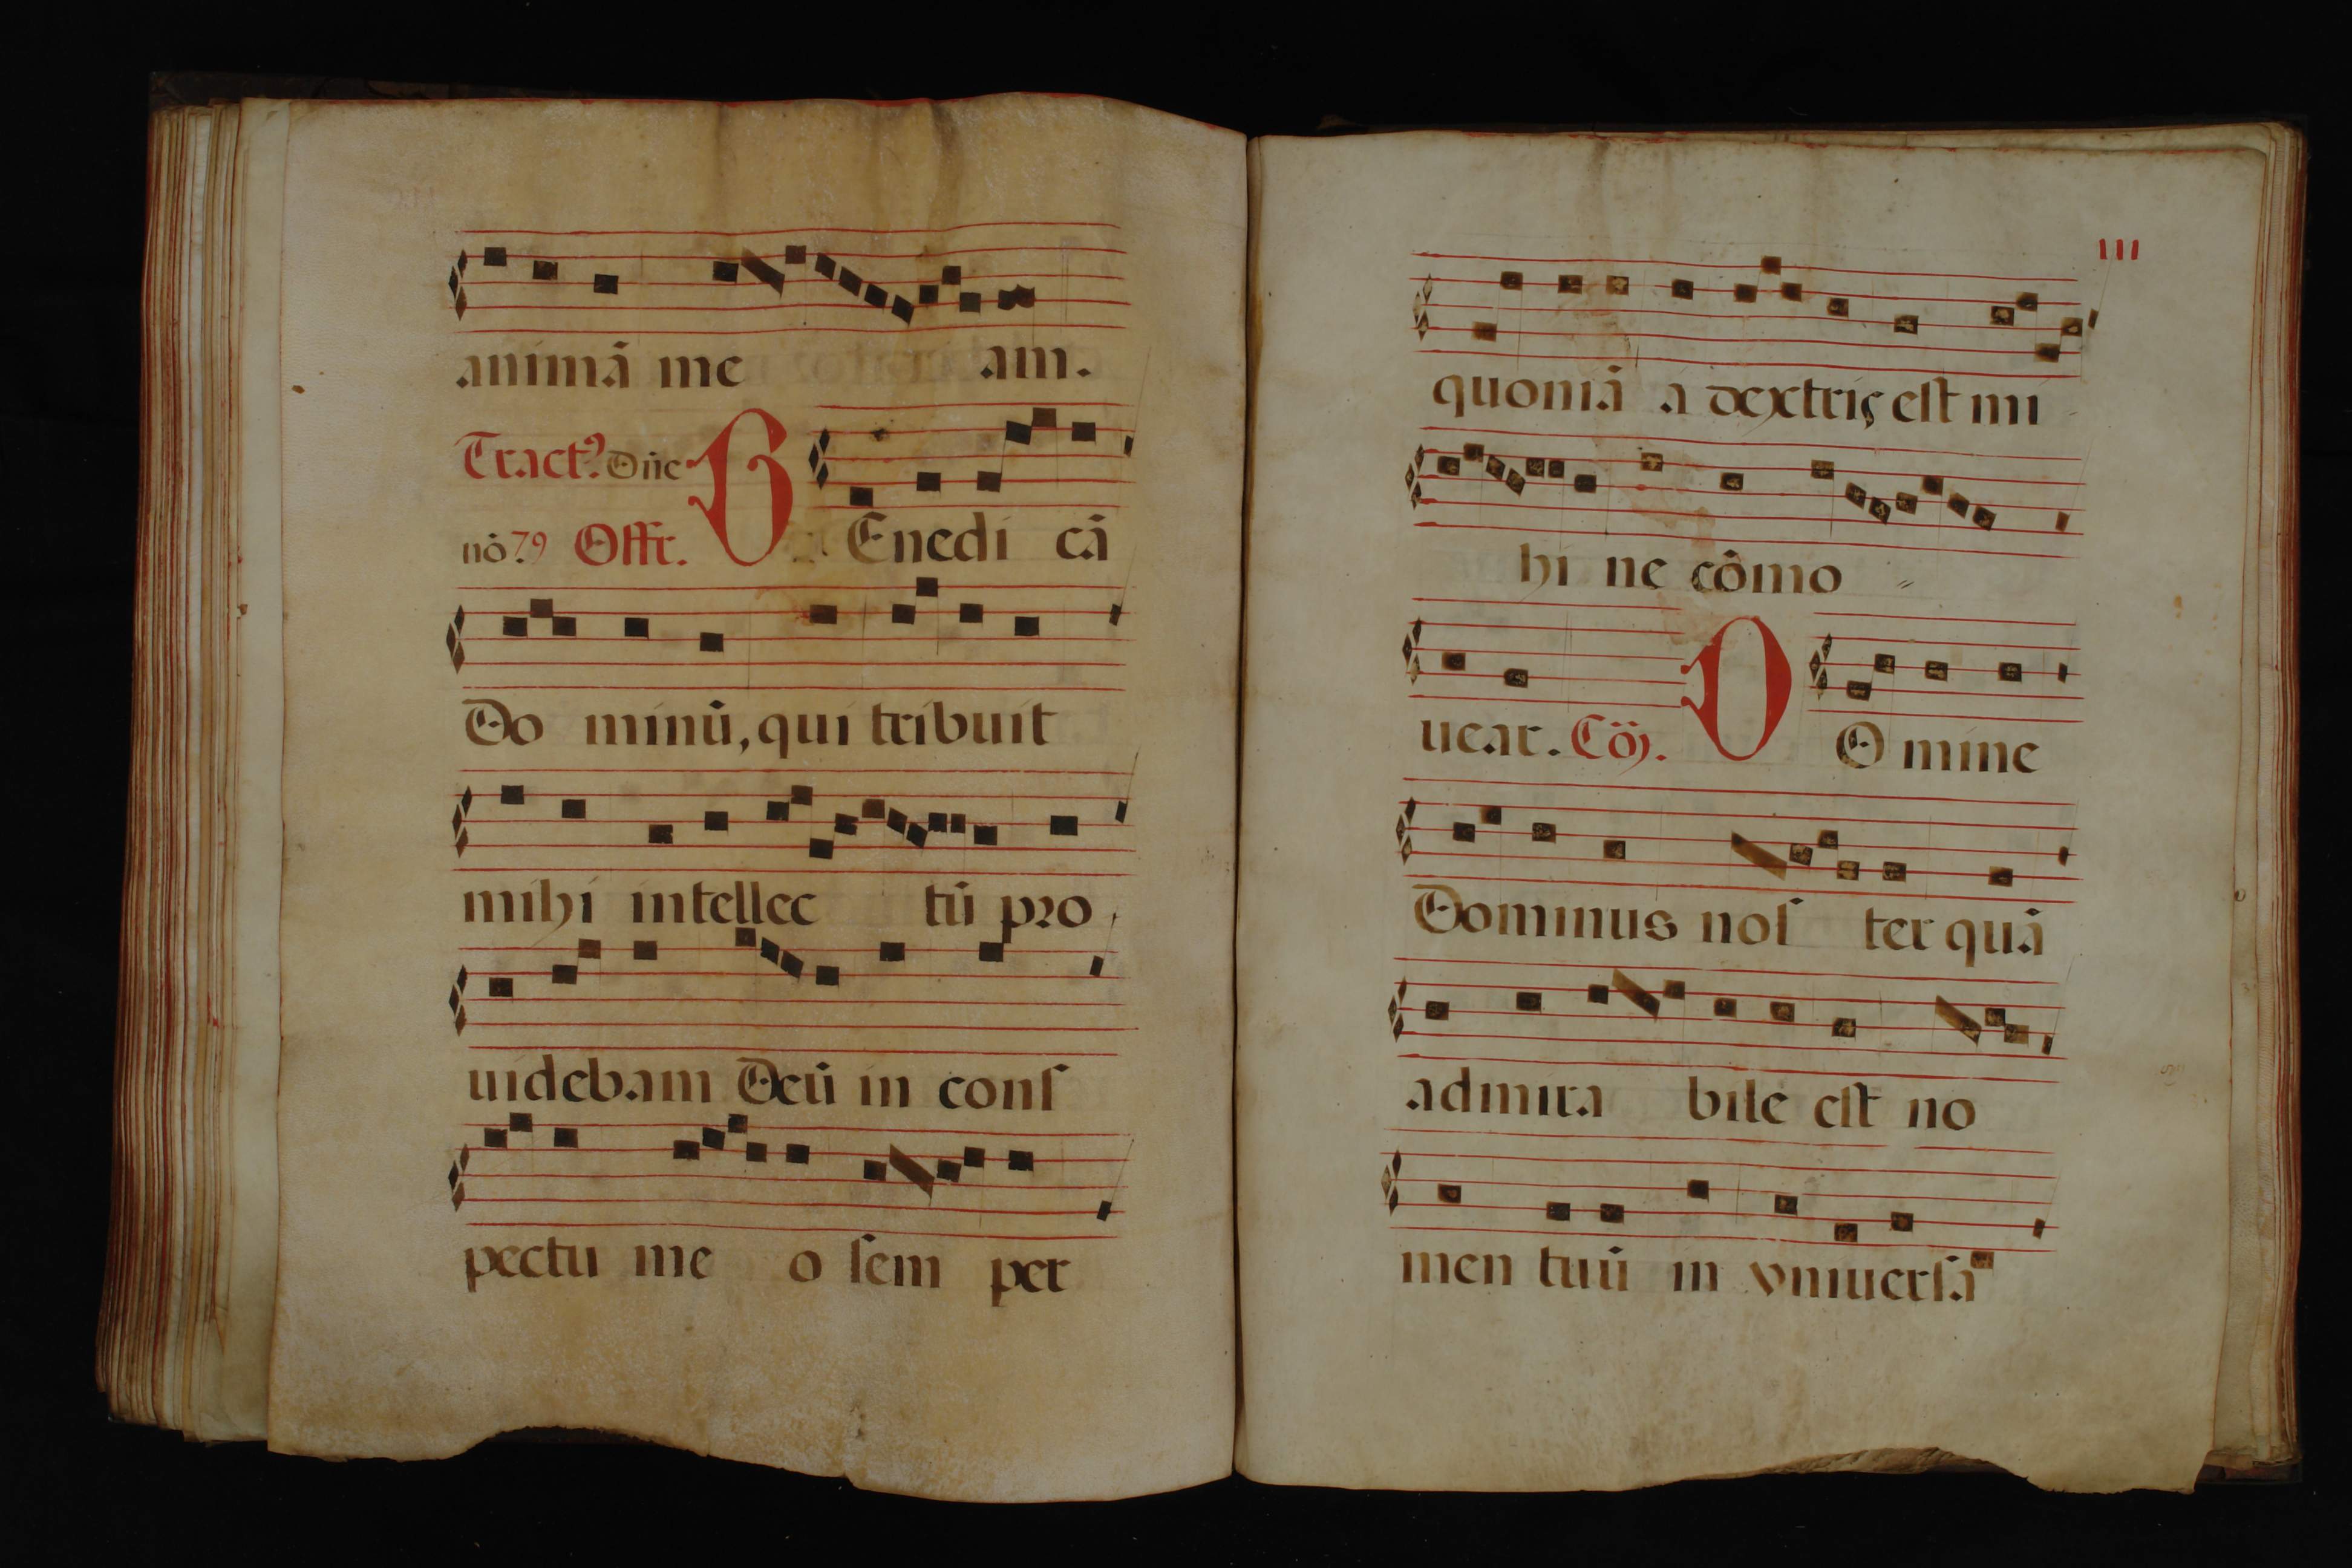 animã me am.
Tract.⁹ Dñe B Enedi cã
nõ. 79 Offr.
Do minũ, qui tribuit
mihi intellec tũ pro
uidebam Deũ in conſ
pectu me o ſem per
111
quoniã a dextris eſt mi
hi ne cõmo
uear. Cõ. D O mine
Dominus noſ ter quã
admira bile eſt no
men tuũ in vniuerſa